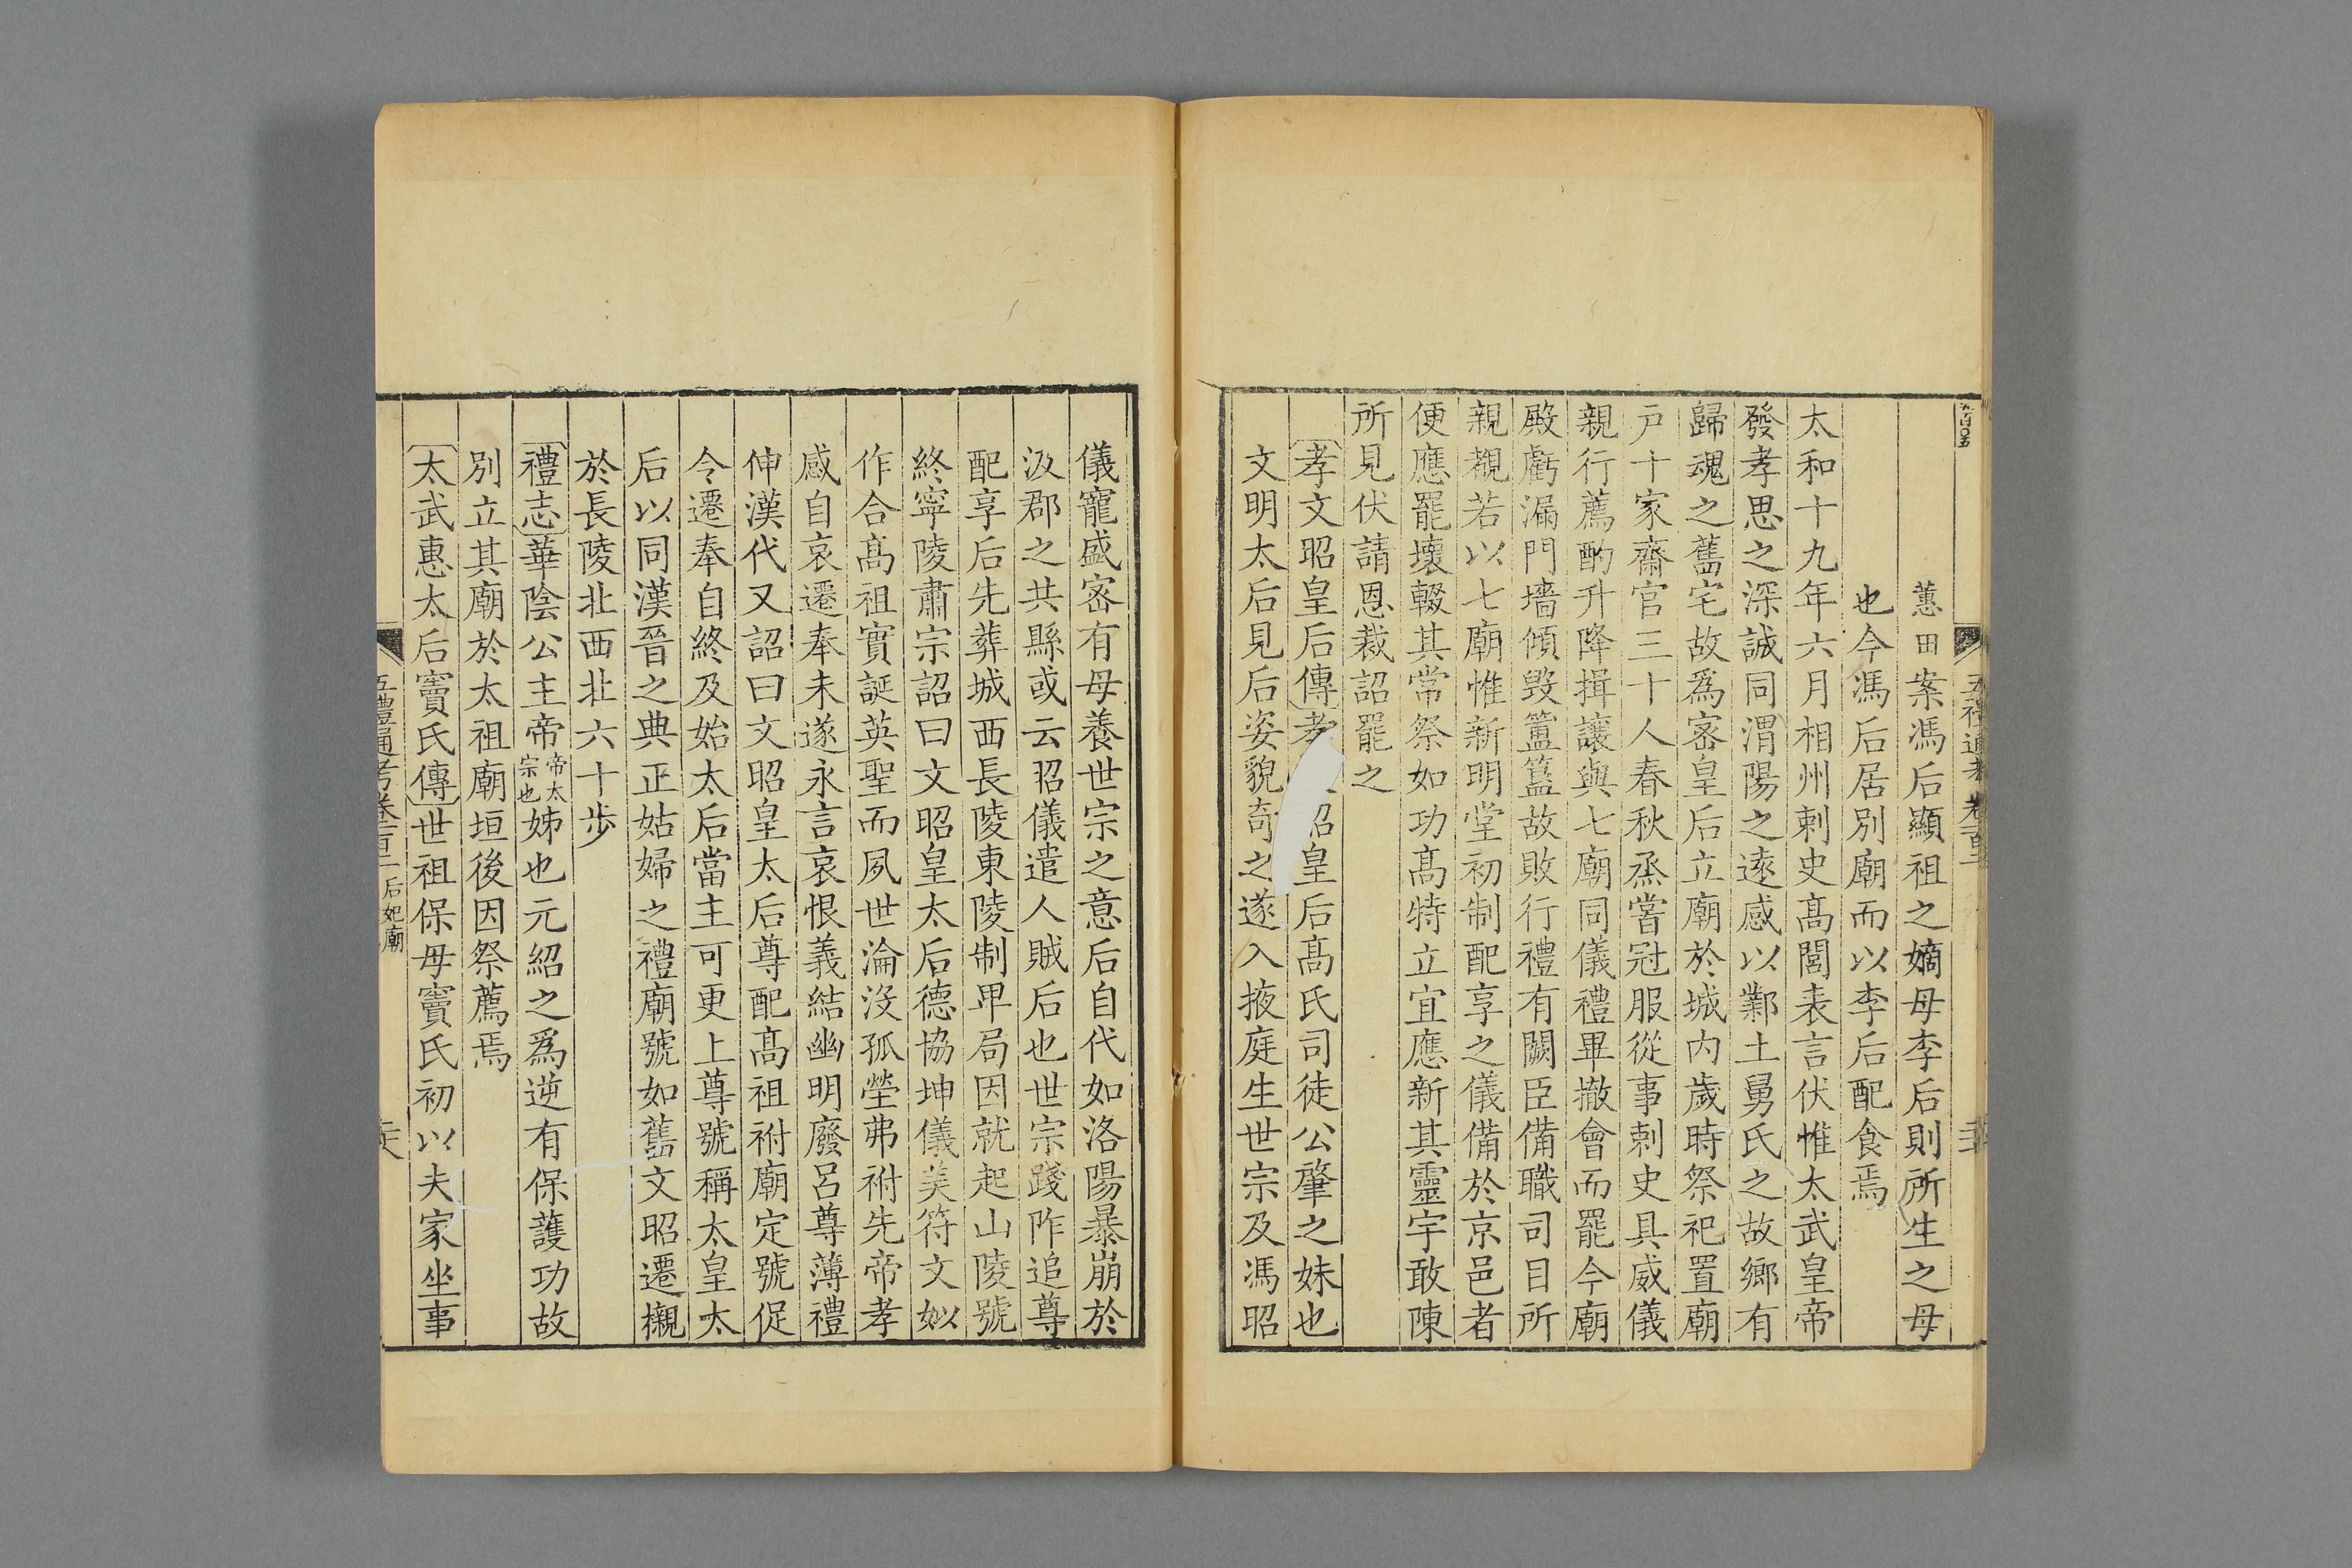 蕙田案馮后顯祖之嫡母李后則所生之母
也今馮后居別廟而以李后配食焉
太和十九年六月相州刺史髙閭表言伏惟太武皇帝
發孝思之深誠同渭陽之逺感以鄴土舅氏之故鄉有
歸魂之舊宅故爲密皇后立廟於城内歲時祭祀置廟
戸十家齋官三十人春秋烝嘗冠服從事刺史具威儀
親行薦酌升降揖讓與七廟同儀禮畢撤會而罷今廟
殿虧漏門墻傾毁簠簋故敗行禮有闕臣備職司目所
親覩若以七廟惟新明堂初制配享之儀備於京邑者
便應罷壞輟其常祭如功髙特立宜應新其靈宇敢陳
所見伏請恩裁詔罷之
孝文昭皇后傳孝昭皇后髙氏司徒公肇之妹也
文明太后見后姿貌奇之遂入掖庭生世宗及馮昭
儀寵盛密有母養世宗之意后自代如洛陽暴崩於
汲郡之共縣或云昭儀遣人賊后也世宗踐阼追尊
配享后先葬城西長陵東陵制卑局因就起山陵號
終寧陵肅宗詔曰文昭皇太后德協坤儀美符文姒
作合髙祖實誕英聖而夙世淪沒孤塋弗祔先帝孝
感自哀遷奉未遂永言哀恨義結幽明廢呂尊薄禮
伸漢代又詔曰文昭皇太后尊配髙祖祔廟定號促
令遷奉自終及始太后當主可更上尊號稱太皇太
后以同漢晉之典正姑婦之禮廟號如舊文昭遷櫬
於長陵北西北六十步
禮志華陰公主帝帝太宗也姊也元紹之爲逆有保護功故
別立其廟於太祖廟垣後因祭薦焉
太武惠太后竇氏傳世祖保母竇氏初以夫家坐事
五禮通考卷一百二 后妃廟